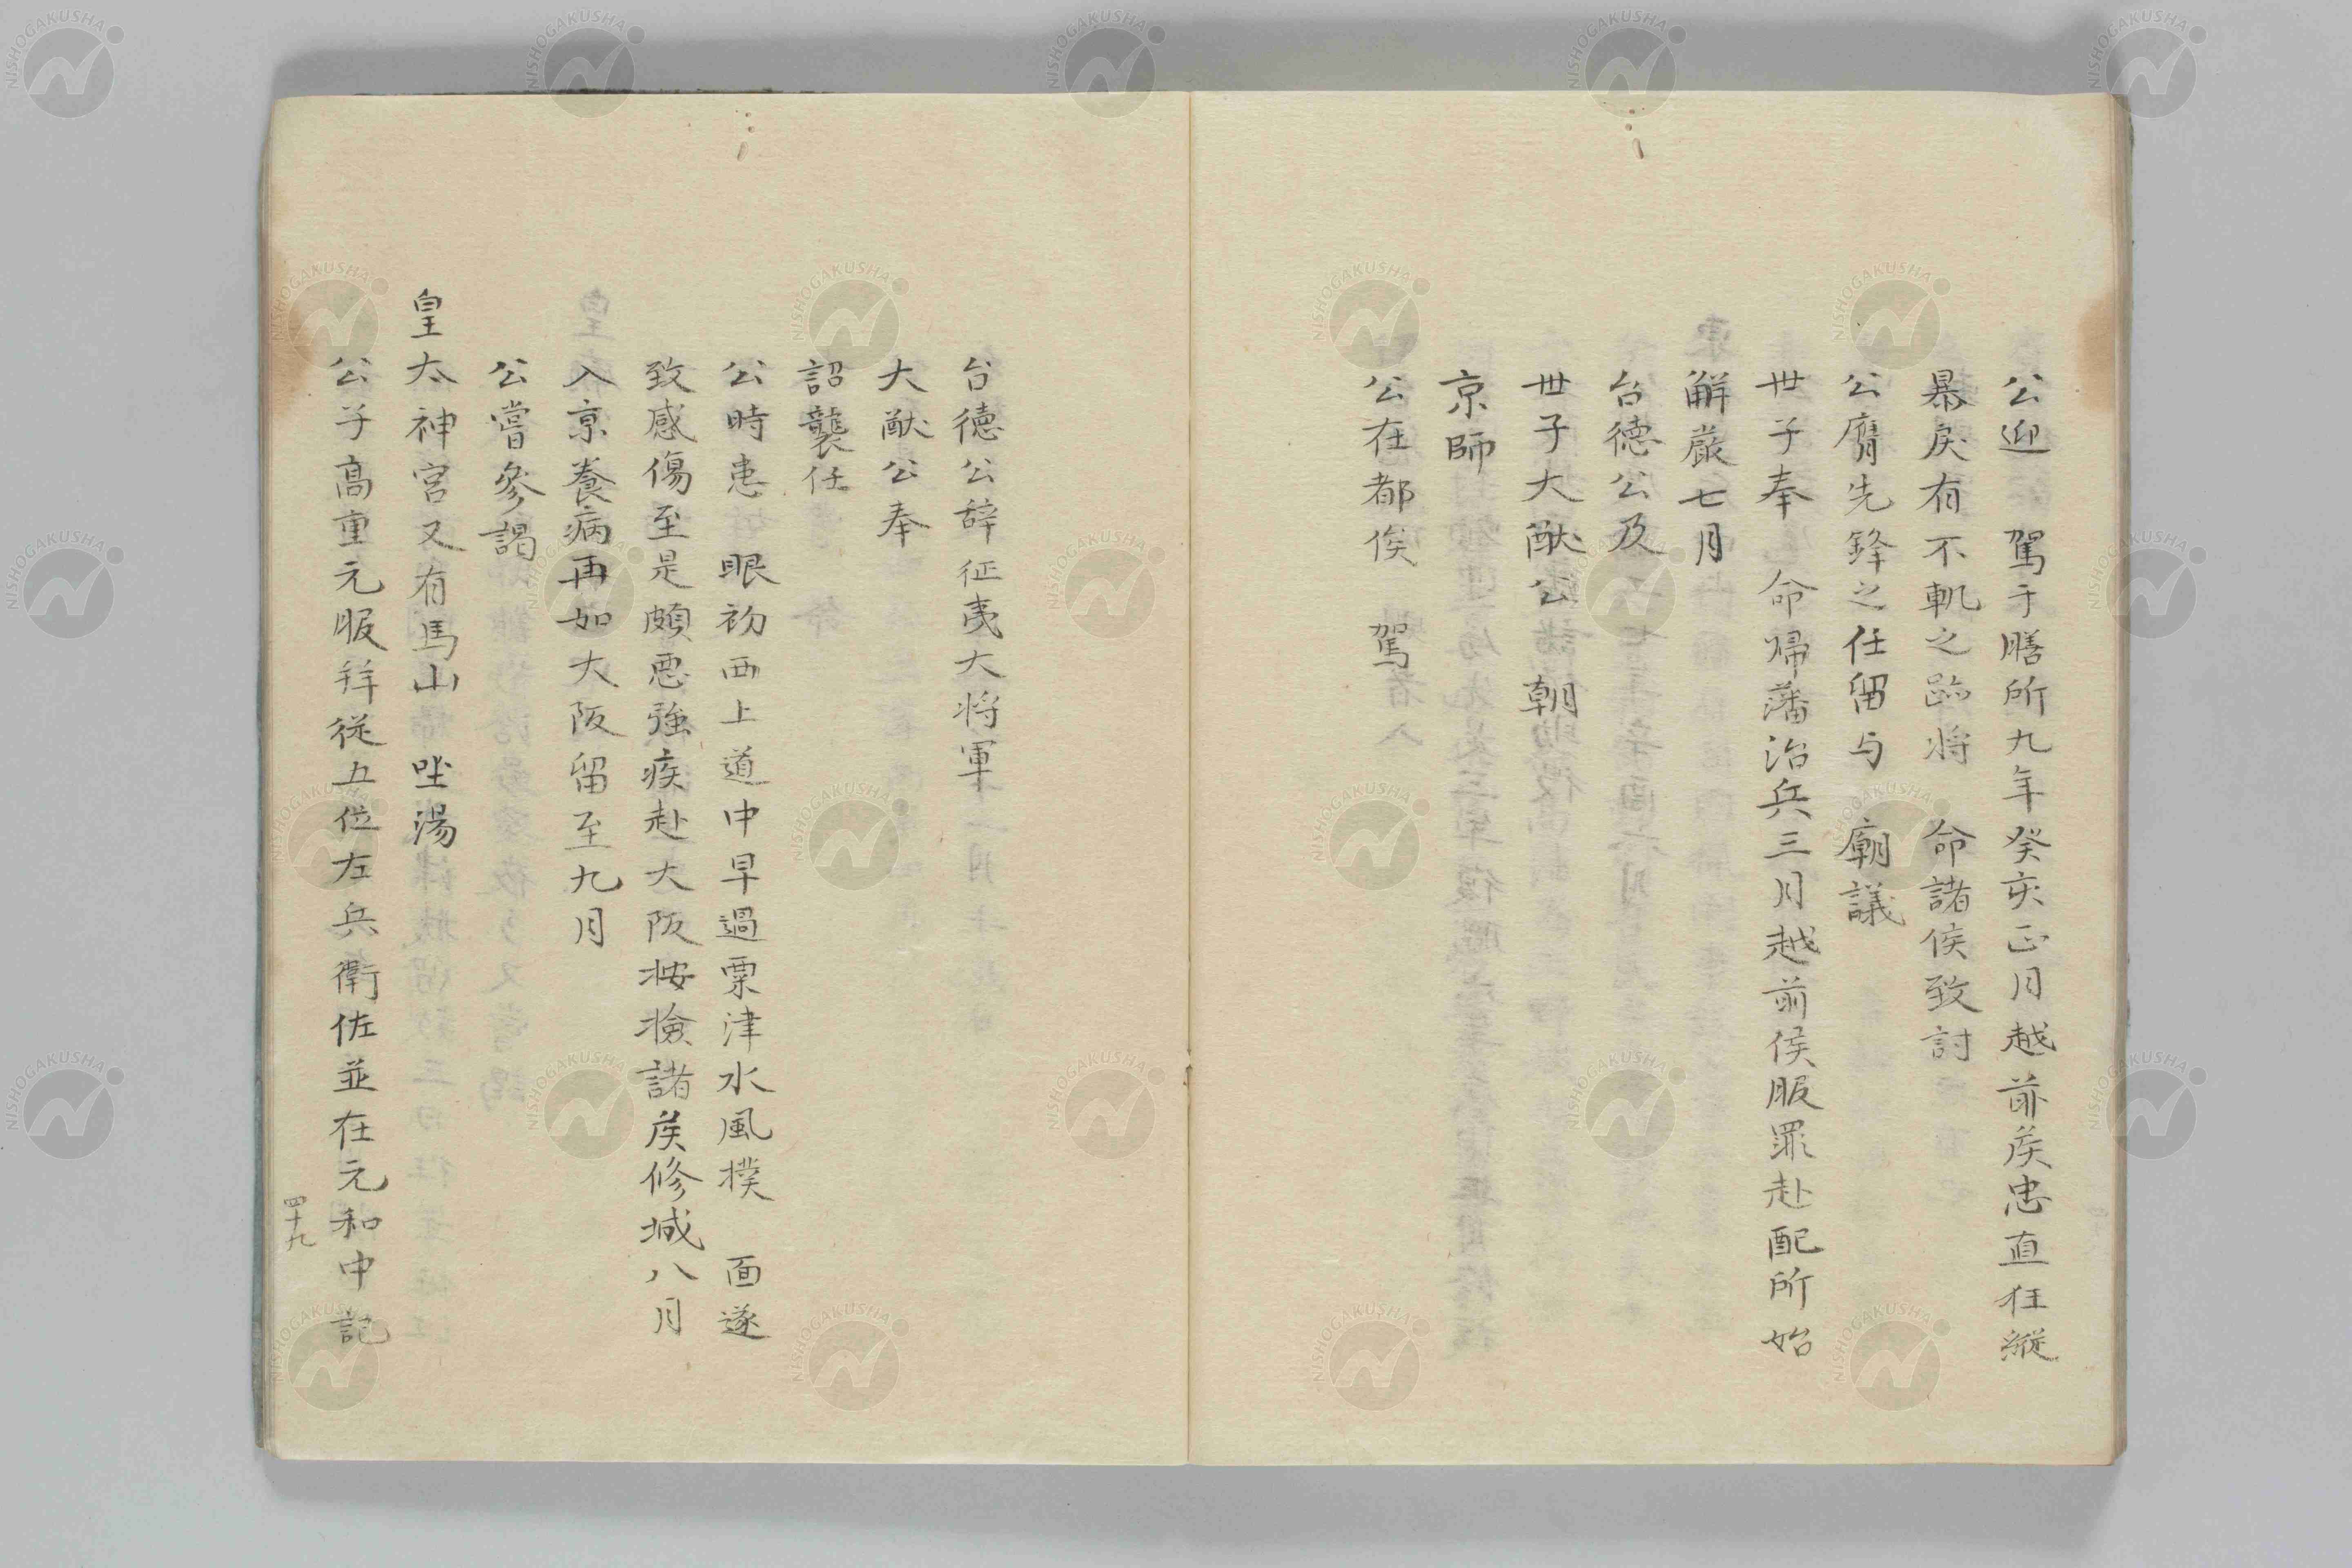 公迎　駕于膳所九年癸亥正月越前侯忠直狂縦
暴戻有不軌之跡将　命諸侯致討
公膺先鋒之任留与　廟議
世子奉　命帰藩治兵三月越前侯服罪赴配所始
解厳七月
台徳公及
世子大猷公朝
京師
公在都俟　駕
台徳公辞征夷大将軍
大猷公奉
詔襲任
公時患　眼初西上道中早過粟津水風撲　面遂
致感傷至是頗悪強疾赴大阪按撿諸侯修城八月
入京養病再如大阪留至九月
公嘗參謁
皇太神宮又有馬山　坐湯
公子高重元服拝従五位左兵衛佐並在元和中記
四十九
NISHOGAKUSHA